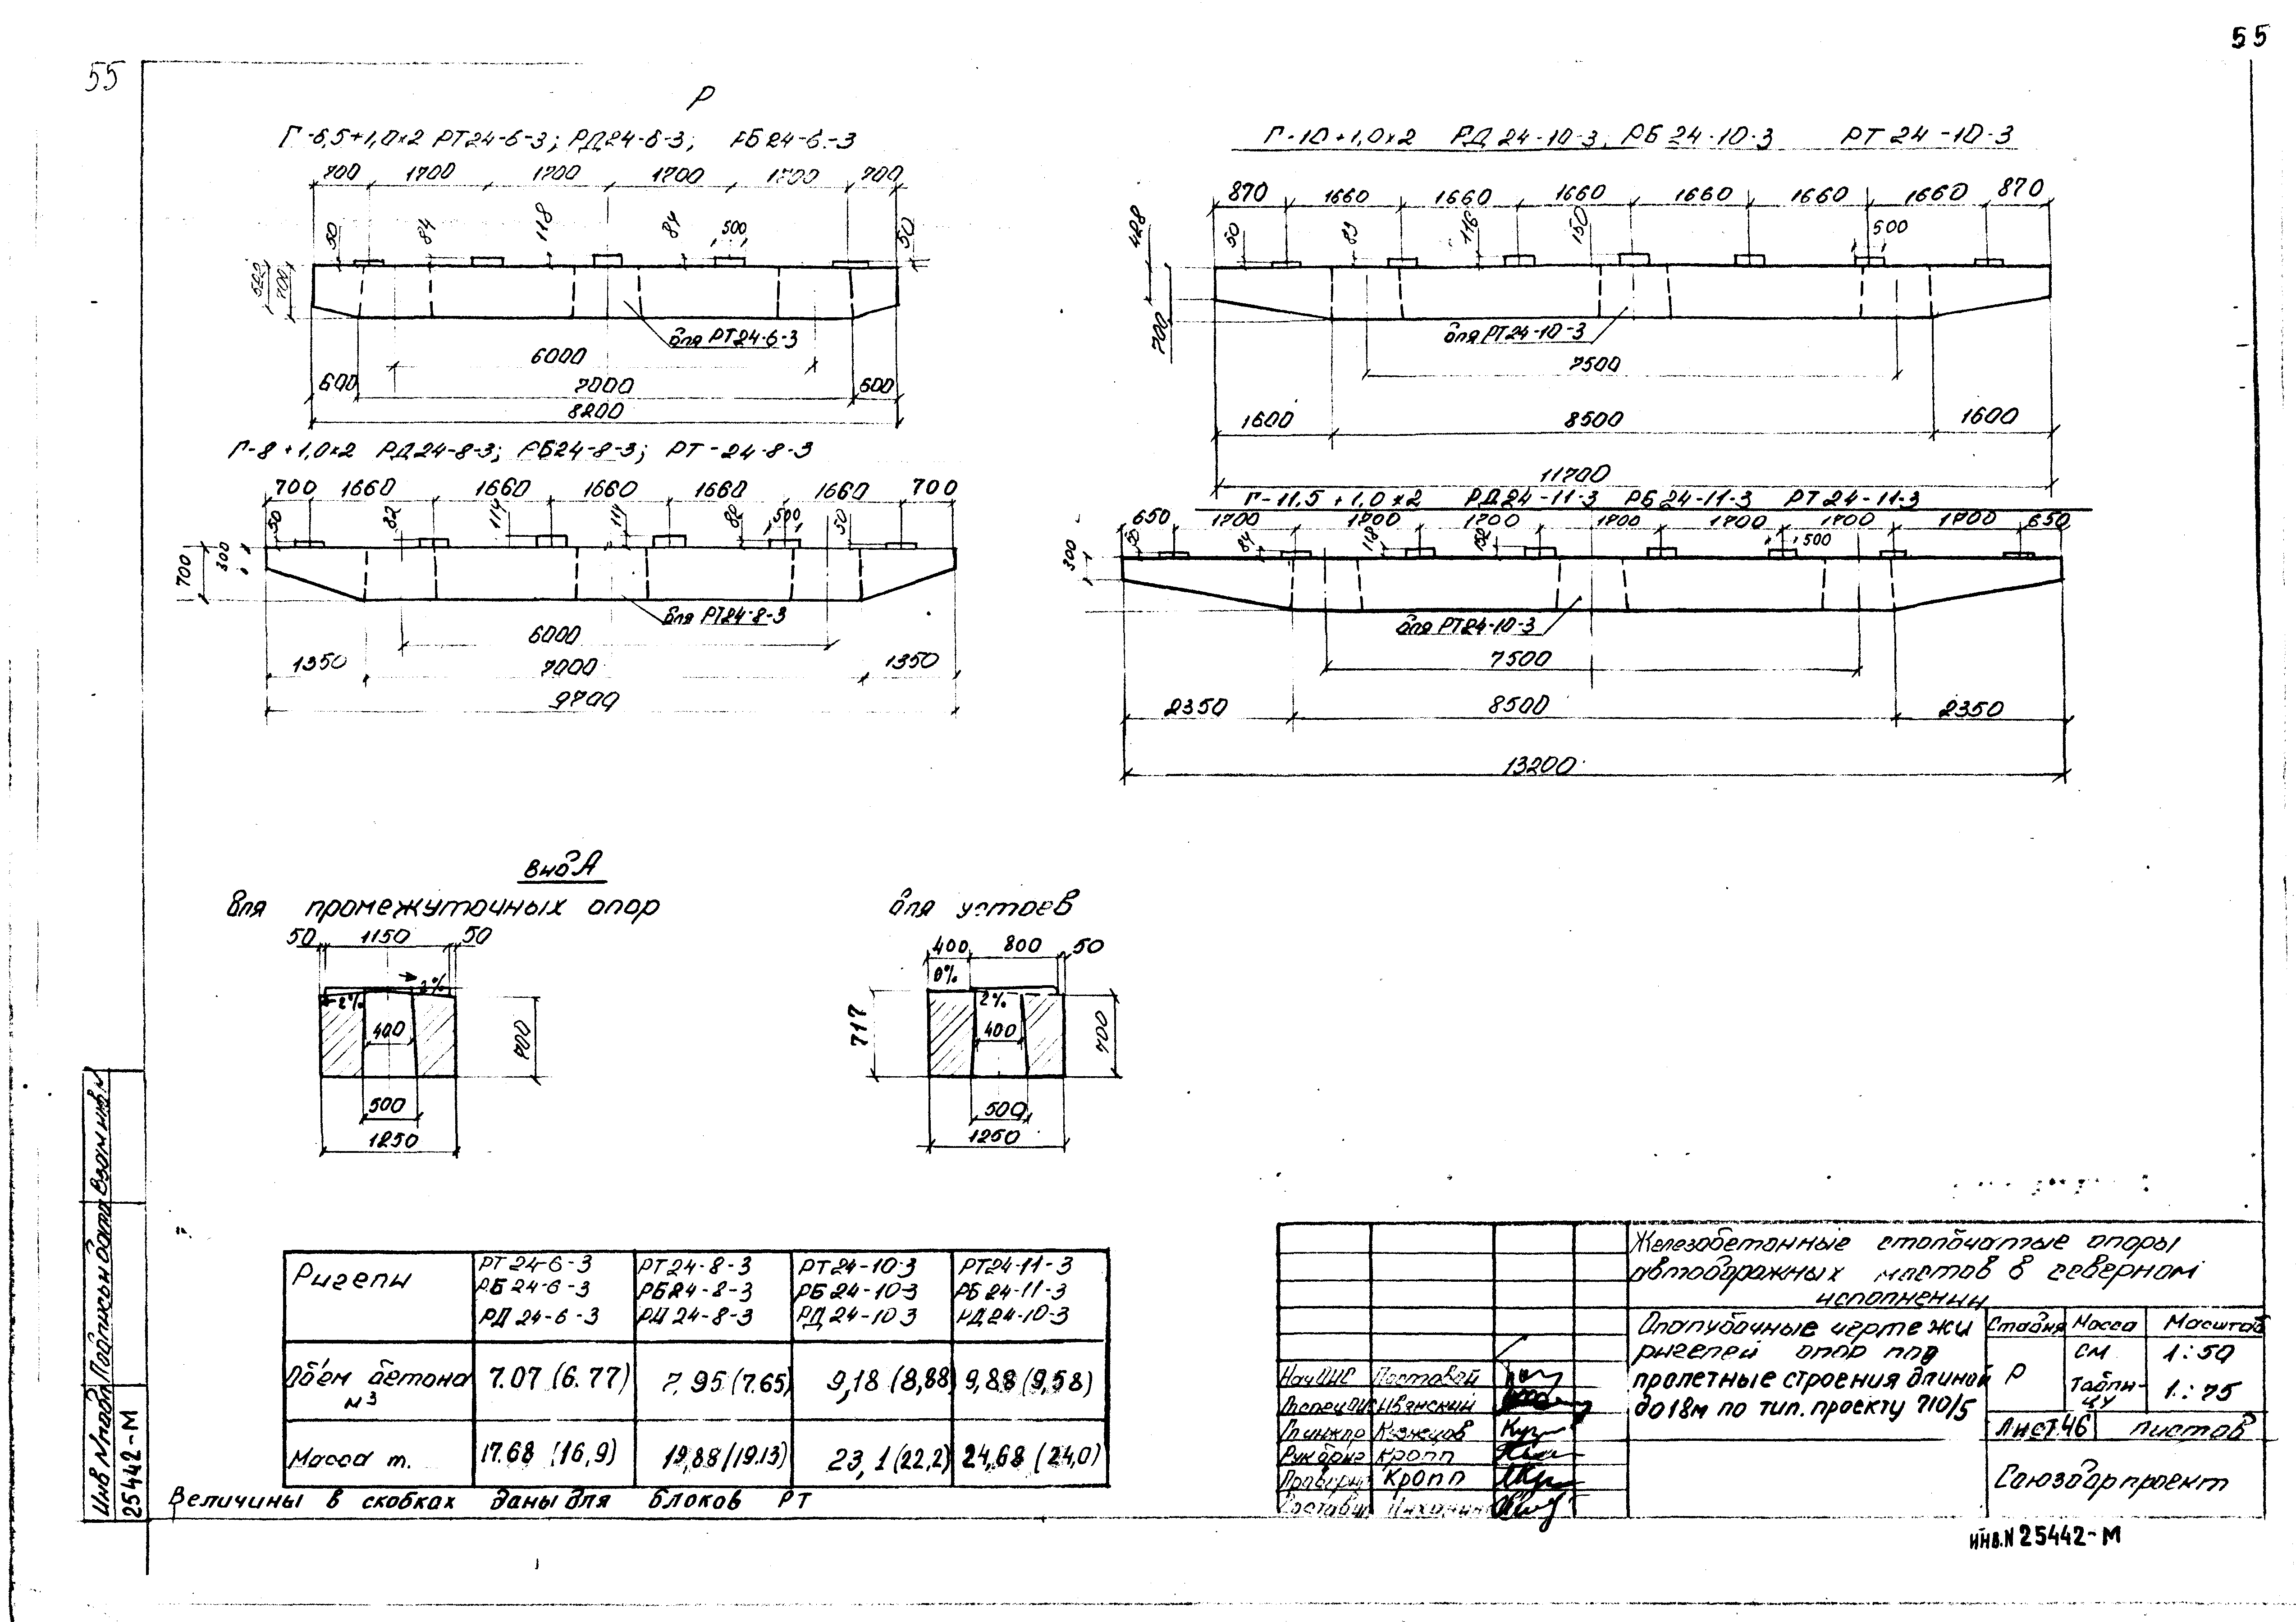 55
55
Р
Г-6,5+1,0×2 РТ24-6-3; РД24-6-3; РБ24-6-3
700 1700 1700 1700 1700 700
50 84 118 84 500 50
700
для РТ24-6-3
6000
600 7000 600
8200
Г-8+1,0×2 РД24-8-3; РБ24-8-3; РТ-24-8-3
700 1660 1660 1660 1660 1660 700
50 82 114 114 82 500 50
700 300
для РТ24-8-3
6000
1350 7000 1350
9700
Г-10+1,0×2 РД24-10-3, РБ24-10-3 РТ24-10-3
870 1660 1660 1660 1660 1660 1660 870
428 50 83 116 150 500
700
для РТ24-10-3
7500
1600 8500 1600
11700
Г-11.5+1,0×2 РД24-11-3 РБ24-11-3 РТ24-11-3
650 1700 1700 1700 1700 1700 1700 1700 650
300 50 84 118 152 500
для РТ24-10-3
7500
2350 8500 2350
13200
Вид А
для промежуточных опор
50 1150 50
2% 2%
400
700
500
1250
для устоев
400 800 50
0%
2%
717 400 700
500
1250
Ригели
РТ24-6-3 РТ24-8-3 РТ24-10-3 РТ24-11-3
РБ24-6-3 РБ24-8-3 РБ24-10-3 РБ24-11-3
РД24-6-3 РД24-8-3 РД24-10-3 РД24-10-3
Объем бетона м3 7.07 (6.77) 7,95 (7.65) 9,18 (8,88) 9,88 (9,58)
Масса т. 17.68 (16,9) 19,88 (19.13) 23,1 (22,2) 24,68 (24,0)
Величины в скобках даны для блоков РТ
Железобетонные столбчатые опоры
автодорожных мостов в северном
исполнении
Опалубочные чертежи
ригелей опор под
пролетные строения длиной
до 18м по тип. проекту 710/5
Стадия Масса Масштаб
Р см таблицу 1:50
1:75
Лист 46 Листов
Союздорпроект
Нач ОИС Постовой
Гл спец ОИС
Гл инж пр Кузнецов
Рук бриг Кропп
Провери Кропп
Состави
Инв N подл Подпись и дата Взам инв N
25442-М
инв. N 25442-М